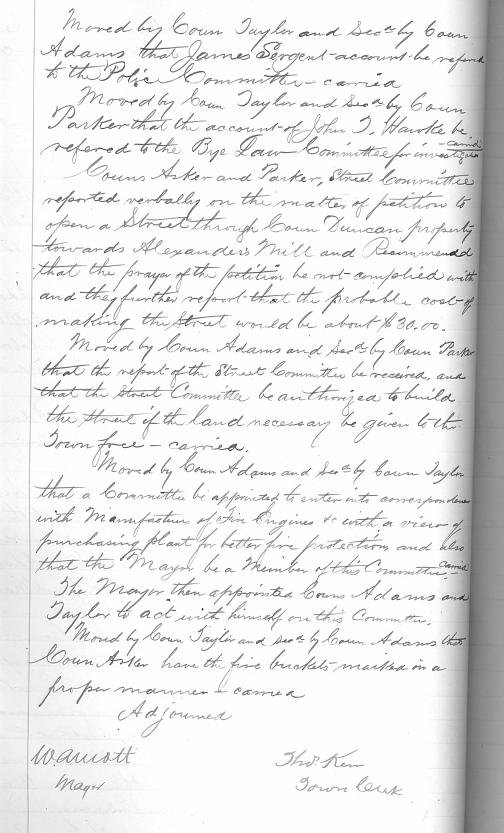 Moved by Coun Taylor and Secd by Coun
Adams that James Sergent account be referred
to the Police Committee - carried
Moved by Coun Taylor and Secd by Coun
Parker that the account of John T. Hawke be
refered to the Bye Law Committee for investigation - carried
Couns Asker and Parker, Street Committee
reported verbally on the matter of petition to
open a Street through Coun Duncan property
towards Alexanders Mill and Recommended
that the prayer of the petition be not complied with
and they further report that the probable cost of
making the Street would be about $30.00.
Moved by Coun Adams and Secd by Coun Parker
that the report of the Street Committee be received, and
that the Street Committee be authorized to build
the street if the land necessary be given to the
Town free - carried.
Moved by Coun Adams and Secd by Coun Taylor
that a Committee be appointed to enter into correspondence
with Manufacture of Fire Engines &c with a view of
purchasing plant for better fire protection and also
that the Mayor be a Member of this Committee - carried
The Mayor then appointed Couns Adams and
Taylor to act with himself on this Committee.
Moved by Coun Taylor and secd by Coun Adams that
Coun Asker have the fire buckets marked in a
proper manner - carried
Adjourned
Thos Kerr
Mayor
Town Clerk